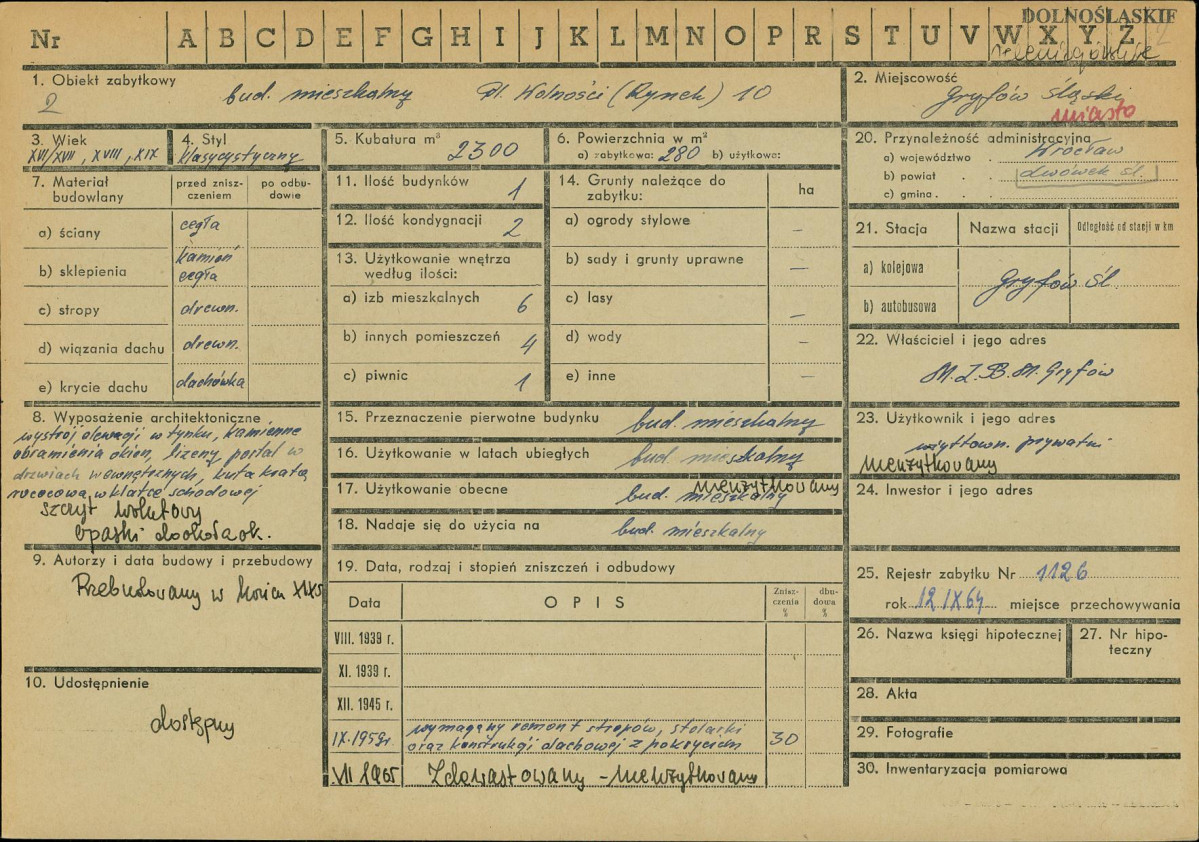 DOLNOŚLĄSKIE
Nr A B C D E F G H I J K L M N O P R S T U V W X Y Z
2
1. Obiekt zabytkowy
2
bud. mieszkalny Pl. Wolności (Rynek) 10
2. Miejscowość
Gryfów Śląski
miasto
3. Wiek
XVI/XVII, XVIII, XIX
4. Styl
klasycystyczny
5. Kubatura m³ 2300
6. Powierzchnia w m²
a) zabytkowa: 280 b) użytkowa:
20. Przynależność administracyjna
a) województwo . Wrocław
b) powiat . . lwówek śl.
c) gmina . . .
7. Materiał budowlany
przed zniszczeniem
po odbudowie
a) ściany cegła
b) sklepienia kamień cegła
c) stropy drewn.
d) wiązania dachu drewn.
e) krycie dachu dachówka
11. Ilość budynków 1
12. Ilość kondygnacji 2
13. Użytkowanie wnętrza według ilości:
a) izb mieszkalnych 6
b) innych pomieszczeń 4
c) piwnic 1
14. Grunty należące do zabytku:
ha
a) ogrody stylowe –
b) sady i grunty uprawne –
c) lasy –
d) wody –
e) inne –
21. Stacja
Nazwa stacji
Odległość od stacji w km
a) kolejowa
b) autobusowa
Gryfów Śl.
22. Właściciel i jego adres
M.Z.B.M. Gryfów
8. Wyposażenie architektoniczne
wystrój elewacji w tynku, kamienne
obramienia okien, lizeny portal w
drzwiach wewnętrznych, kuta krata
rococowa w klatce schodowej
szczyt wolutowy
opaski dookoła ok.
15. Przeznaczenie pierwotne budynku bud. mieszkalny
16. Użytkowanie w latach ubiegłych bud. mieszkalny
17. Użytkowanie obecne bud. mieszkalny
nieużytkowany
18. Nadaje się do użycia na bud. mieszkalny
23. Użytkownik i jego adres
użytkown. prywatni
nieużytkowany
24. Inwestor i jego adres
9. Autorzy i data budowy i przebudowy
Przebudowany w końcu
19. Data, rodzaj i stopień zniszczeń i odbudowy
Data
OPIS
Zniszczenia %
dbudowa %
VIII. 1939 r.
XI. 1939 r.
XII. 1945 r.
IX.1959r. wymagany remont stropów, stolarki
oraz konstrukcji dachowej z pokryciem 30
VII 1965 Zdewastowany – nieużytkowany
10. Udostępnienie
dostępny
25. Rejestr zabytku Nr 1126
rok 12 IX 64 miejsce przechowywania
26. Nazwa księgi hipotecznej
27. Nr hipoteczny
28. Akta
29. Fotografie
30. Inwentaryzacja pomiarowa